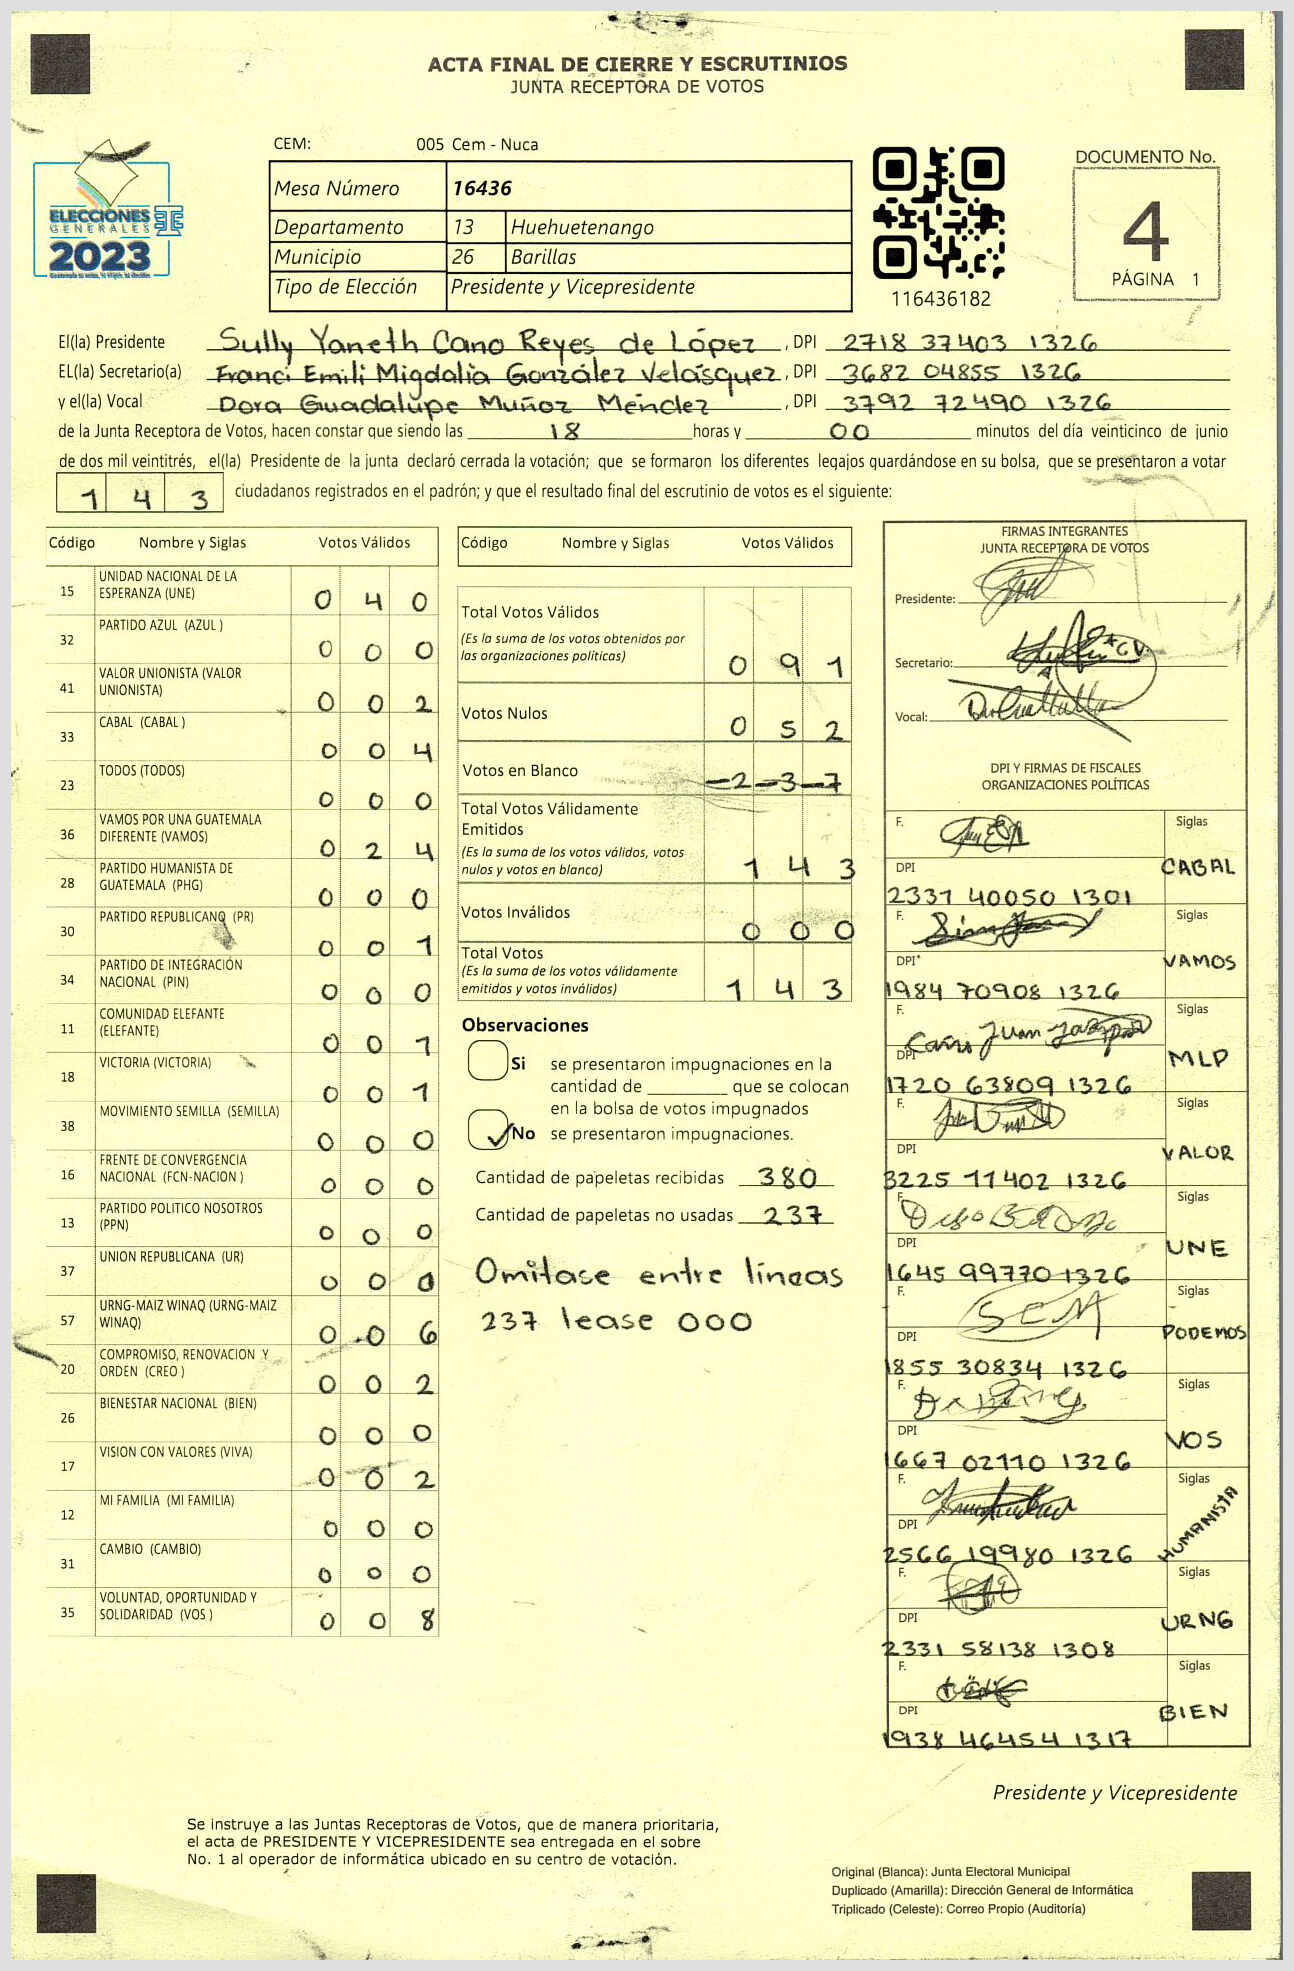 ACTA FINAL DE CIERRE Y ESCRUTINIOS
JUNTA RECEPTORA DE VOTOS
ELECCIONES
GENERALES
2023
CEM: 005 Cem - Nuca
Mesa Número 16436
Departamento 13 Huehuetenango
Municipio 26 Barillas
Tipo de Elección Presidente y Vicepresidente
116436182
DOCUMENTO No.
4
PÁGINA 1
El(la) Presidente Sully Yaneth Cano Reyes de López, DPI 2718 37403 1326
EL(la) Secretario(a) Franci Emili Migdalia González Velásquez, DPI 3682 04855 1326
y el(la) Vocal Dora Guadalupe Muñoz Méndez, DPI 3792 72490 1326
de la Junta Receptora de Votos, hacen constar que siendo las 18 horas y 00 minutos del día veinticinco de junio
de dos mil veintitrés, el(la) Presidente de la junta declaró cerrada la votación; que se formaron los diferentes legajos guardándose en su bolsa, que se presentaron a votar
143 ciudadanos registrados en el padrón; y que el resultado final del escrutinio de votos es el siguiente:
Código Nombre y Siglas Votos Válidos
15 UNIDAD NACIONAL DE LA ESPERANZA (UNE) 0 4 0
32 PARTIDO AZUL (AZUL ) 0 0 0
41 VALOR UNIONISTA (VALOR UNIONISTA) 0 0 2
33 CABAL (CABAL ) 0 0 4
23 TODOS (TODOS) 0 0 0
36 VAMOS POR UNA GUATEMALA DIFERENTE (VAMOS) 0 2 4
28 PARTIDO HUMANISTA DE GUATEMALA (PHG) 0 0 0
30 PARTIDO REPUBLICANO (PR) 0 0 1
34 PARTIDO DE INTEGRACIÓN NACIONAL (PIN) 0 0 0
11 COMUNIDAD ELEFANTE (ELEFANTE) 0 0 1
18 VICTORIA (VICTORIA) 0 0 1
38 MOVIMIENTO SEMILLA (SEMILLA) 0 0 0
16 FRENTE DE CONVERGENCIA NACIONAL (FCN-NACION ) 0 0 0
13 PARTIDO POLITICO NOSOTROS (PPN) 0 0 0
37 UNION REPUBLICANA (UR) 0 0 0
57 URNG-MAIZ WINAQ (URNG-MAIZ WINAQ) 0 0 6
20 COMPROMISO, RENOVACION Y ORDEN (CREO ) 0 0 2
26 BIENESTAR NACIONAL (BIEN) 0 0 0
17 VISION CON VALORES (VIVA) 0 0 2
12 MI FAMILIA (MI FAMILIA) 0 0 0
31 CAMBIO (CAMBIO) 0 0 0
35 VOLUNTAD, OPORTUNIDAD Y SOLIDARIDAD (VOS ) 0 0 8
Código Nombre y Siglas Votos Válidos
Total Votos Válidos
(Es la suma de los votos obtenidos por
las organizaciones políticas) 0 9 1
Votos Nulos 0 5 2
Votos en Blanco 2 3 7
Total Votos Válidamente
Emitidos
(Es la suma de los votos válidos, votos
nulos y votos en blanco) 1 4 3
Votos Inválidos 0 0 0
Total Votos
(Es la suma de los votos válidamente
emitidos y votos inválidos) 1 4 3
Observaciones
Si se presentaron impugnaciones en la
cantidad de ________ que se colocan
en la bolsa de votos impugnados
No se presentaron impugnaciones.
Cantidad de papeletas recibidas 380
Cantidad de papeletas no usadas 237
Omitase entre líneas
237 lease 000
FIRMAS INTEGRANTES
JUNTA RECEPTORA DE VOTOS
Presidente:
Secretario:
Vocal:
DPI Y FIRMAS DE FISCALES
ORGANIZACIONES POLÍTICAS
F. Siglas
DPI CABAL
2337 40050 1301
F. Siglas
DPI VAMOS
1984 70908 1326
F. Juan Siglas
DPI MLP
1720 63809 1326
F. Siglas
DPI VALOR
3225 11402 1326
F. Siglas
DPI UNE
1645 99770 1326
F. SCM Siglas
DPI PODEMOS
1855 30834 1326
F. Siglas
DPI VOS
1667 02110 1326
F. Siglas
DPI HUMANISTA
2566 19980 1326
F. Siglas
DPI URNG
2331 58138 1308
F. Siglas
DPI BIEN
1938 46454 1317
Presidente y Vicepresidente
Se instruye a las Juntas Receptoras de Votos, que de manera prioritaria,
el acta de PRESIDENTE Y VICEPRESIDENTE sea entregada en el sobre
No. 1 al operador de informática ubicado en su centro de votación.
Original (Blanca): Junta Electoral Municipal
Duplicado (Amarilla): Dirección General de Informática
Triplicado (Celeste): Correo Propio (Auditoría)